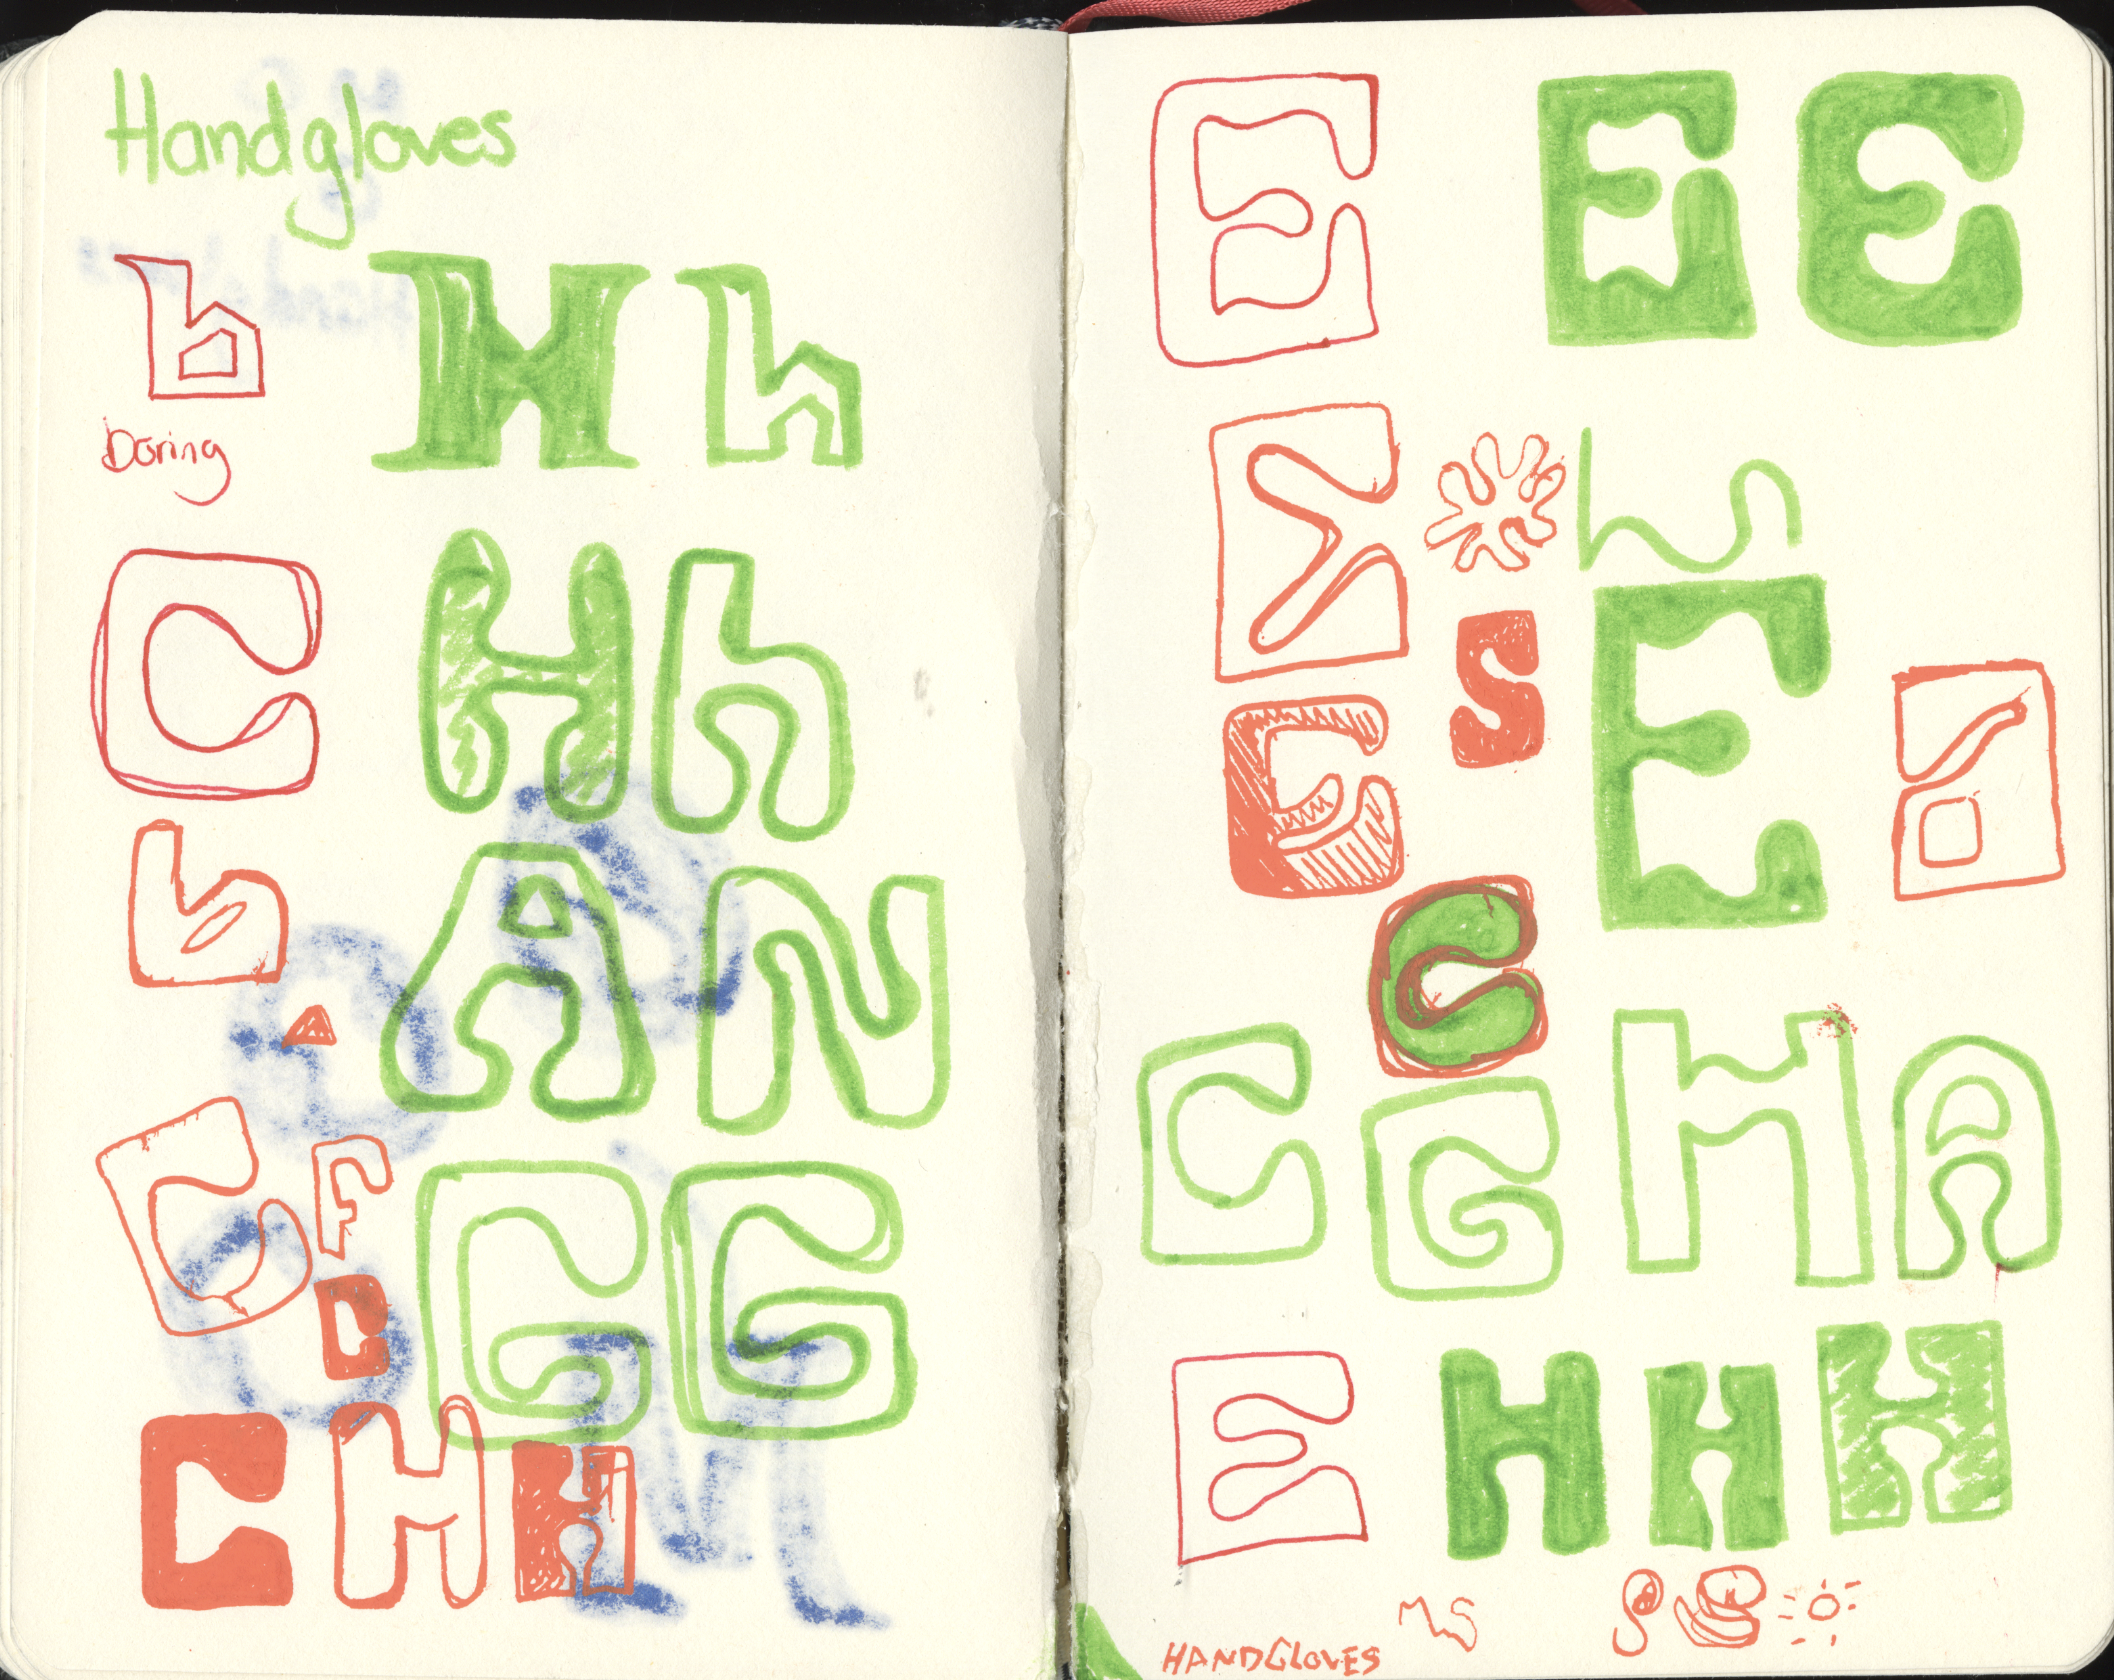 Handgloves
b H h
Daring
C H h
h A N
C F G G
D
C H H
E E E
S
E E a
C
C G H A
E H H H
MS
HANDGLOVES